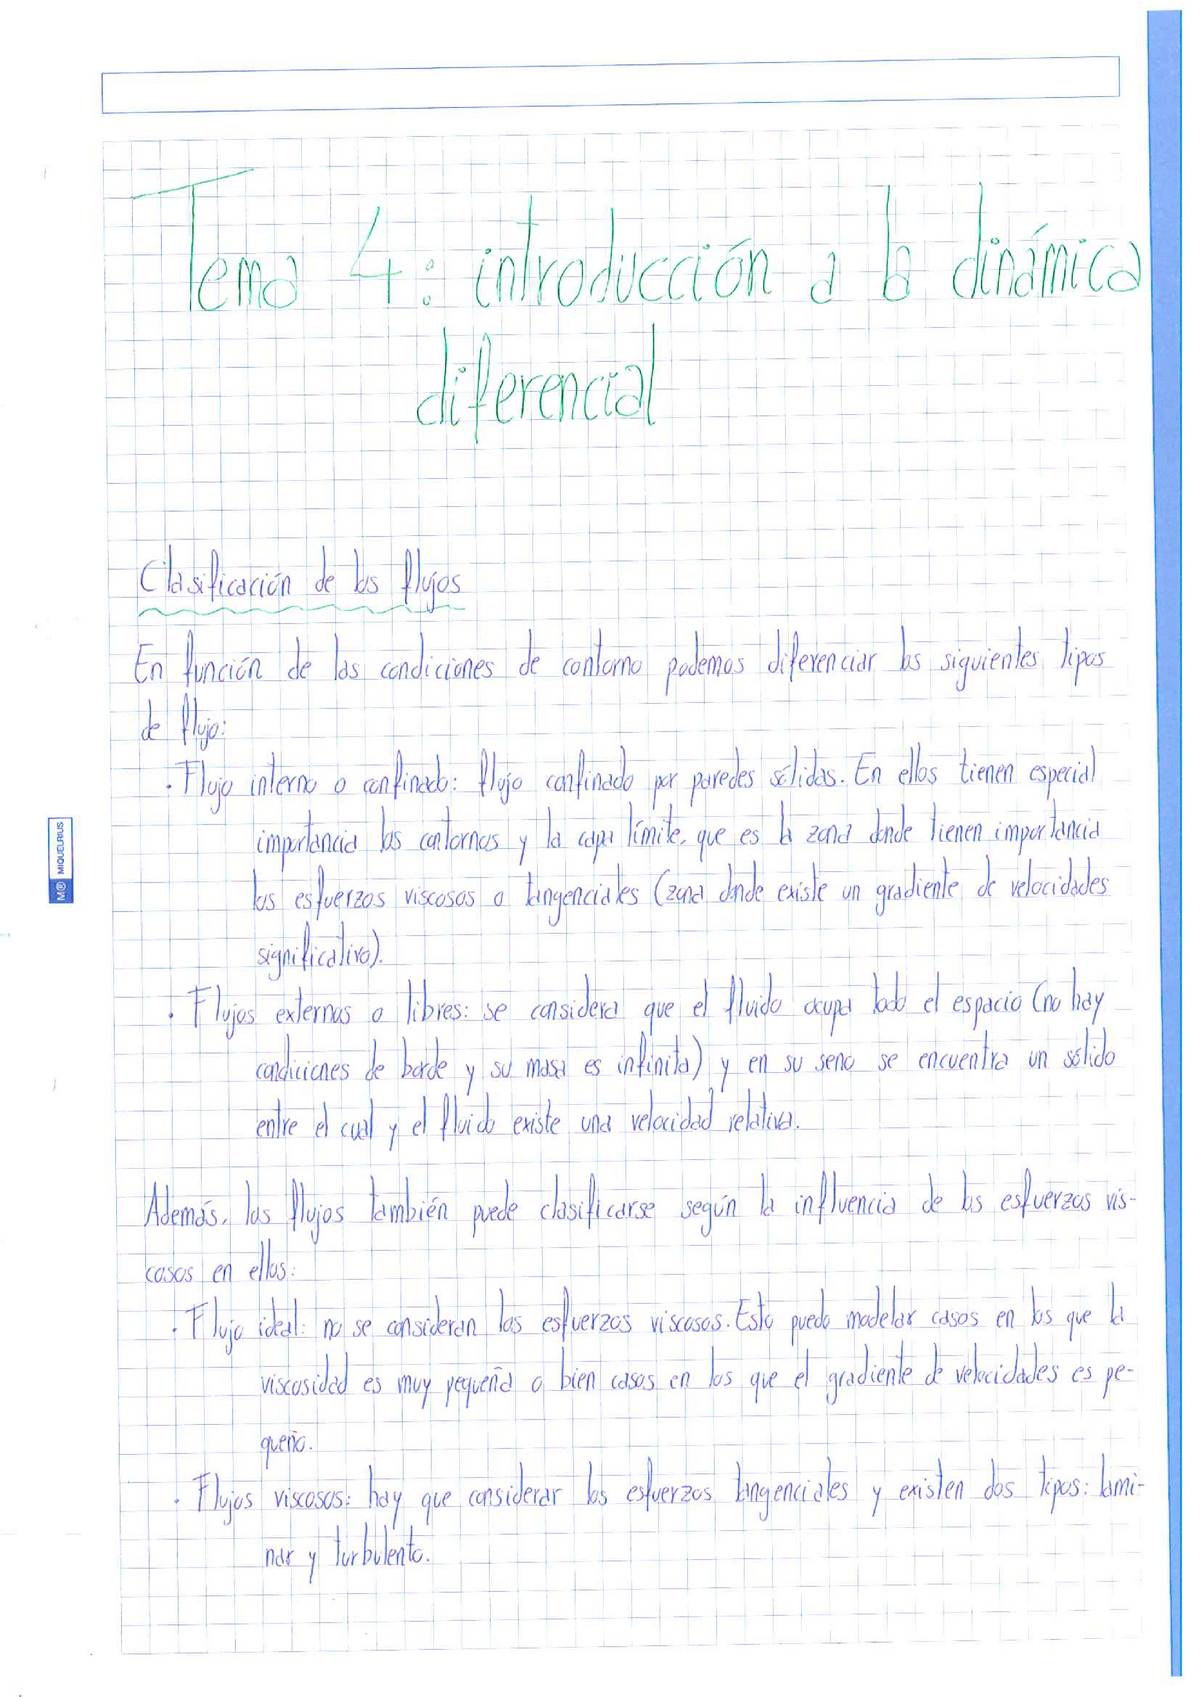 Tema 4: introducción a la dinámica
diferencial
Clasificación de los flujos
En función de las condiciones de contorno podemos diferenciar los siguientes tipos
de flujo:
· Flujo interno o confinado: flujo confinado por paredes sólidas. En ellos tienen especial
importancia los contornos y la capa límite, que es la zona donde tienen importancia
los esfuerzos viscosos o tangenciales (zona donde existe un gradiente de velocidades
significativo).
· Flujos externos o libres: se considera que el fluido ocupa todo el espacio (no hay
condiciones de borde y su masa es infinita) y en su seno se encuentra un sólido
entre el cual y el fluido existe una velocidad relativa.
Además, los flujos también puede clasificarse según la influencia de los esfuerzos vis-
cosos en ellos:
· Flujo ideal: no se consideran los esfuerzos viscosos. Esto puede modelar casos en los que la
viscosidad es muy pequeña o bien casos en los que el gradiente de velocidades es pe-
queño.
· Flujos viscosos: hay que considerar los esfuerzos tangenciales y existen dos tipos: lami-
nar y turbulento.
MIQUELRIUS